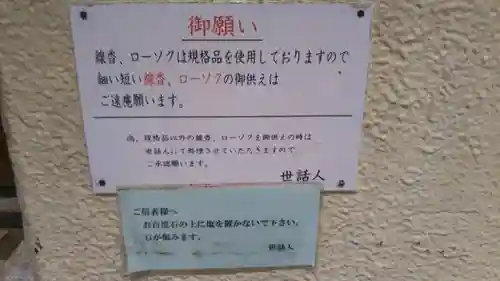 御願い
線香、ローソクは規格品を使用しておりますので
細い短い線香、ローソクの御供えは
ご遠慮願います。
尚、規格品以外の線香、ローソクを御供えの時は
世話人にて処理させていただきますので
ご承認願います。
世話人
ご信者様へ
お百度石の上に塩を置かないで下さい。
石が傷みます。
世話人